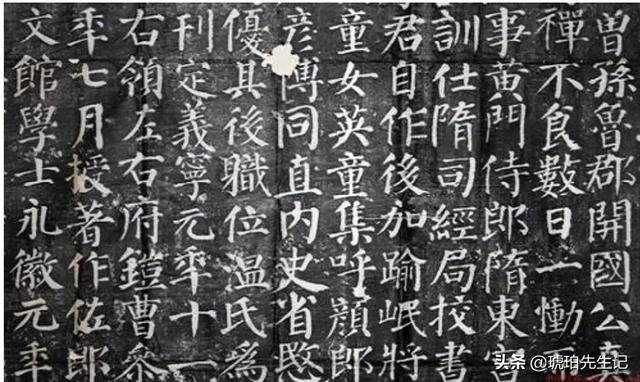 曾孫魯郡開國公真
禪不食數日一慟而
事黃門侍郎隋東宮
訓仕隋司經局校書
君自作後加踰岷將
童女英童集呼顏郎
彥博同直內史省愍
優其後職位溫氏為
刊定義寧元年十一
右領左右府鎧曹參
年七月授著作佐郎
文館學士永徽元年
头条 @琥珀先生记